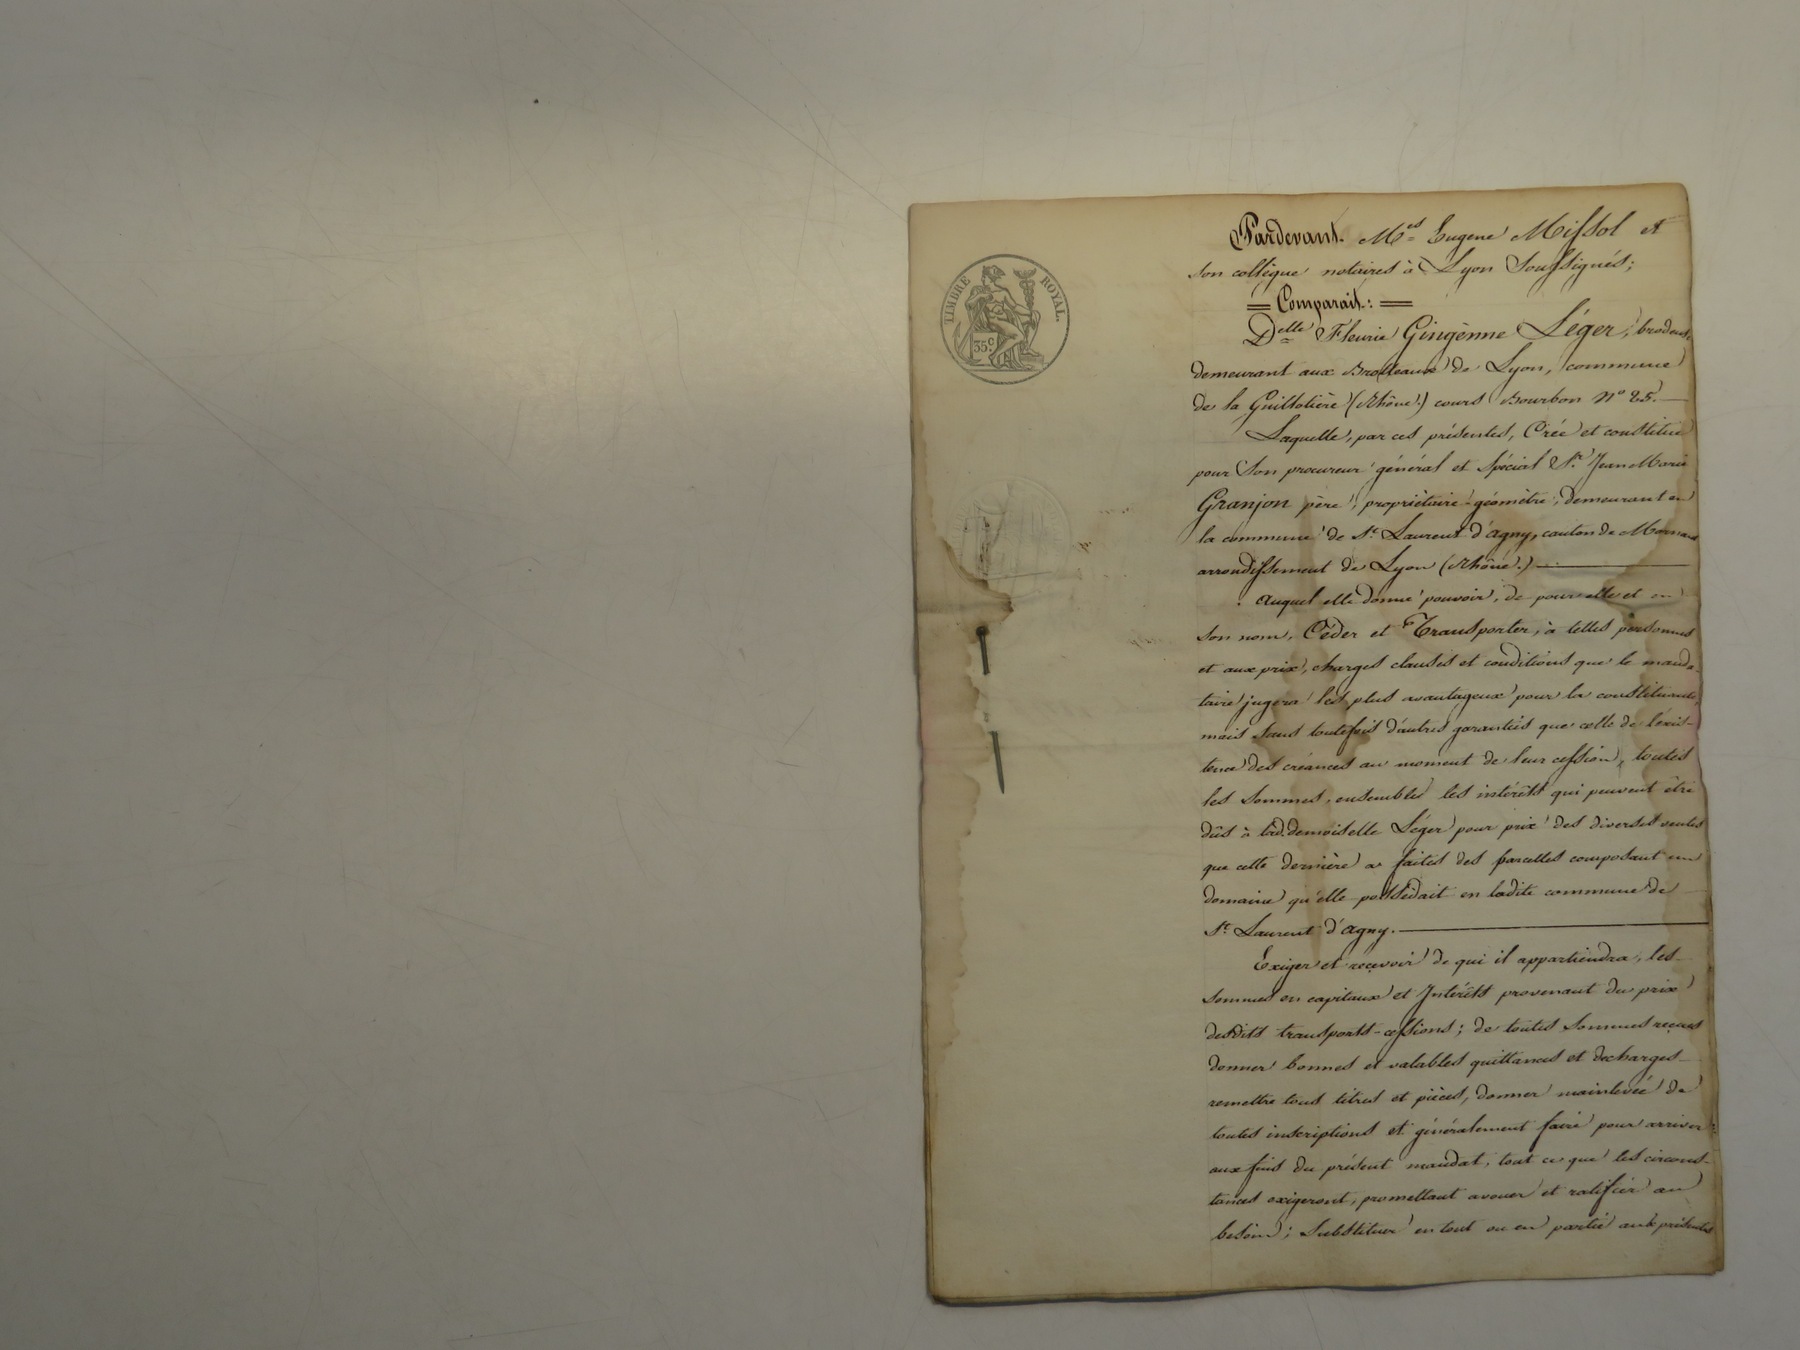 TIMBRE ROYAL.
35c.
Pardevant Mes Eugene Missol et
son collègue notaires à Lyon Soussignés;
= Comparait: =
Delle Fleurie Gingènne Léger, brodeuse
demeurant aux Brotteaux de Lyon, commune
de la Guillotière (Rhône) cours Bourbon No 25.
Laquelle, par ces présentes, Crée et constitue
pour Son procureur général et Spécial Sr. Jean Marie
Granjon père, propriétaire-géomètre, demeurant en
la commune de St Laurent d'agny, canton de Mornant
arrondissement de Lyon (Rhône.)
Auquel elle donne pouvoir, de pour elle et en
son nom, Céder et Transporter, à telles personnes
et aux prix, charges clauses et conditions que le manda-
taire jugera les plus avantageux pour la constituante,
mais sans toutefois d'autres garanties que celle de l'exis-
tence des créances au moment de leur cession, toutes
les Sommes, ensembles les intérêts qui peuvent être
dûs à lad. demoiselle Léger pour prix des diverses ventes
que cette dernière a faites des parcelles composant un
domaine qu'elle possédait en ladite commune de
St Laurent d'agny.
Exiger et recevoir de qui il appartiendra, les
Sommes en capitaux et Intérêts provenant du prix
desdits transports-cessions; de toutes Sommes reçues
donner bonnes et valables quittances et décharges
remettre tous titres et pièces, donner mainlevée de
toutes inscriptions et généralement faire pour arriver
aux fins du présent mandat, tout ce que les circons-
tances exigeront, promettant avouer et ratifier au
besoin; Substituer en tout ou en partie aux présentes